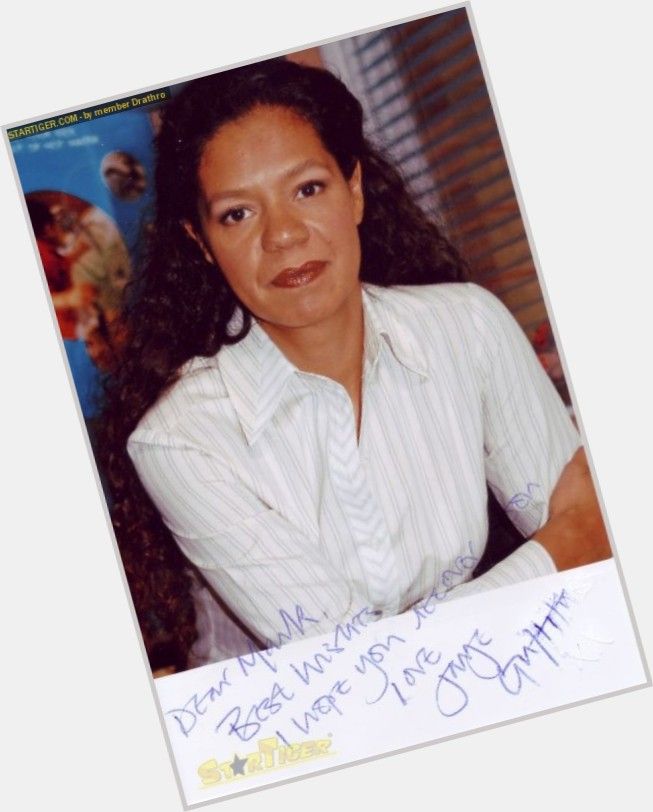 STARTIGER.COM - by member Drathro
DEAR MARK.
BEST WISHES
I HOPE YOU RECOVER SOON
LOVE JAYE
GRIFFITHS
STARTIGER